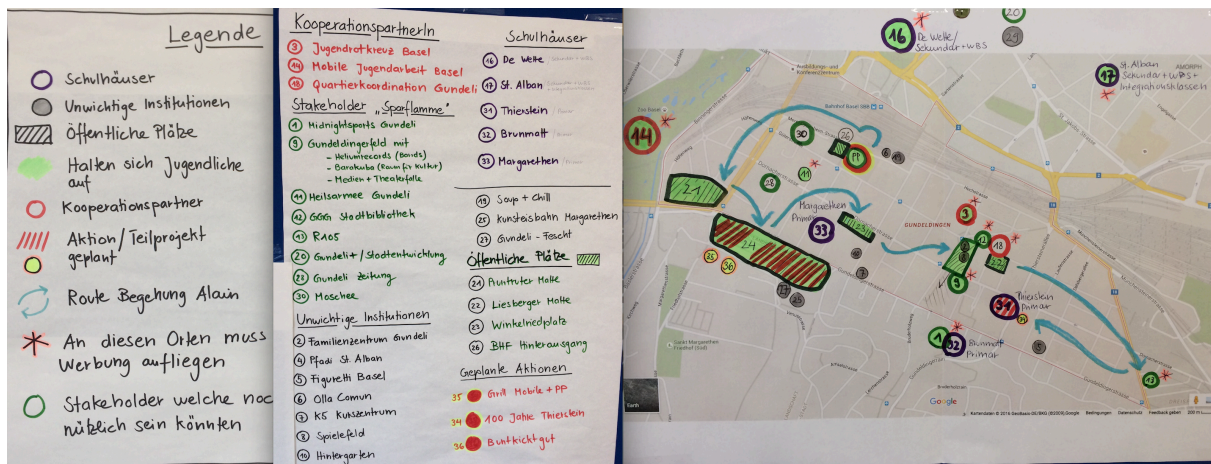 Legende
Schulhäuser
Unwichtige Institutionen
Öffentliche Plätze
Halten sich Jugendliche
auf
Kooperationspartner
Aktion/Teilprojekt
geplant
Route Begehung Alain
An diesen Orten muss
Werbung aufliegen
Stakeholder welche noc
nützlich sein könnten
KooperationspartnerIn
3 Jugendrotkreuz Basel
14 Mobile Jugendarbeit Basel
18 Quartierkoordination Gundeli
Stakeholder "Sparflamme"
1 Midnightsports Gundeli
9 Gundeldingerfeld mit
- Heliumrecords (Bands)
- Barakuba (Raum für Kultur)
- Medien + Theaterfalle
11 Heilsarmee Gundeli
12 GGG Stadtbibliothek
13 R105
20 Gundeli+/Stadtentwicklung
28 Gundeli Zeitung
30 Moschee
Unwichtige Institutionen
2 Familienzentrum Gundeli
4 Pfadi St. Alban
5 Figuretti Basel
6 Olla Comun
7 K5 Kurszentrum
8 Spielefeld
10 Hintergarten
Schulhäuser
16 De Wette
17 St. Alban
31 Thierstein
32 Brunmatt
33 Margarethen
19 Soup + Chill
25 Kunsteisbahn Margarethen
27 Gundeli-Fescht
Öffentliche Plätze
21 Pruntruter Matte
22 Liesberger Matte
23 Winkelriedplatz
26 BHF Hinterausgang
Geplante Aktionen
35 Grill Mobile + PP
34 100 Jahre Thierstein
36 Buntkicktgut
16 De Wette/
Sekundar + WBS
20
29
17 St. Alban
Sekundar + WBS +
Integrationsklassen
AMORPH
Ausbildungs- und
Konferenzzentrum
Zoo Basel
Bahnhof Basel SBB
14
30
26
PP
6
11
28
21
Margarethen
Primar
33
23
GUNDELDINGEN
3
12
18
22
24
25
36
10
7
9
27
25
31
Thierstein
Primar
34
1
32
Brunmatt
Primar
5
13
Sankt Margarethen
Friedhof (Süd)
Earth
Google
Kartendaten © 2016 GeoBasis-DE/BKG (©2009), Google Bedingungen Datenschutz Feedback geben 200 m